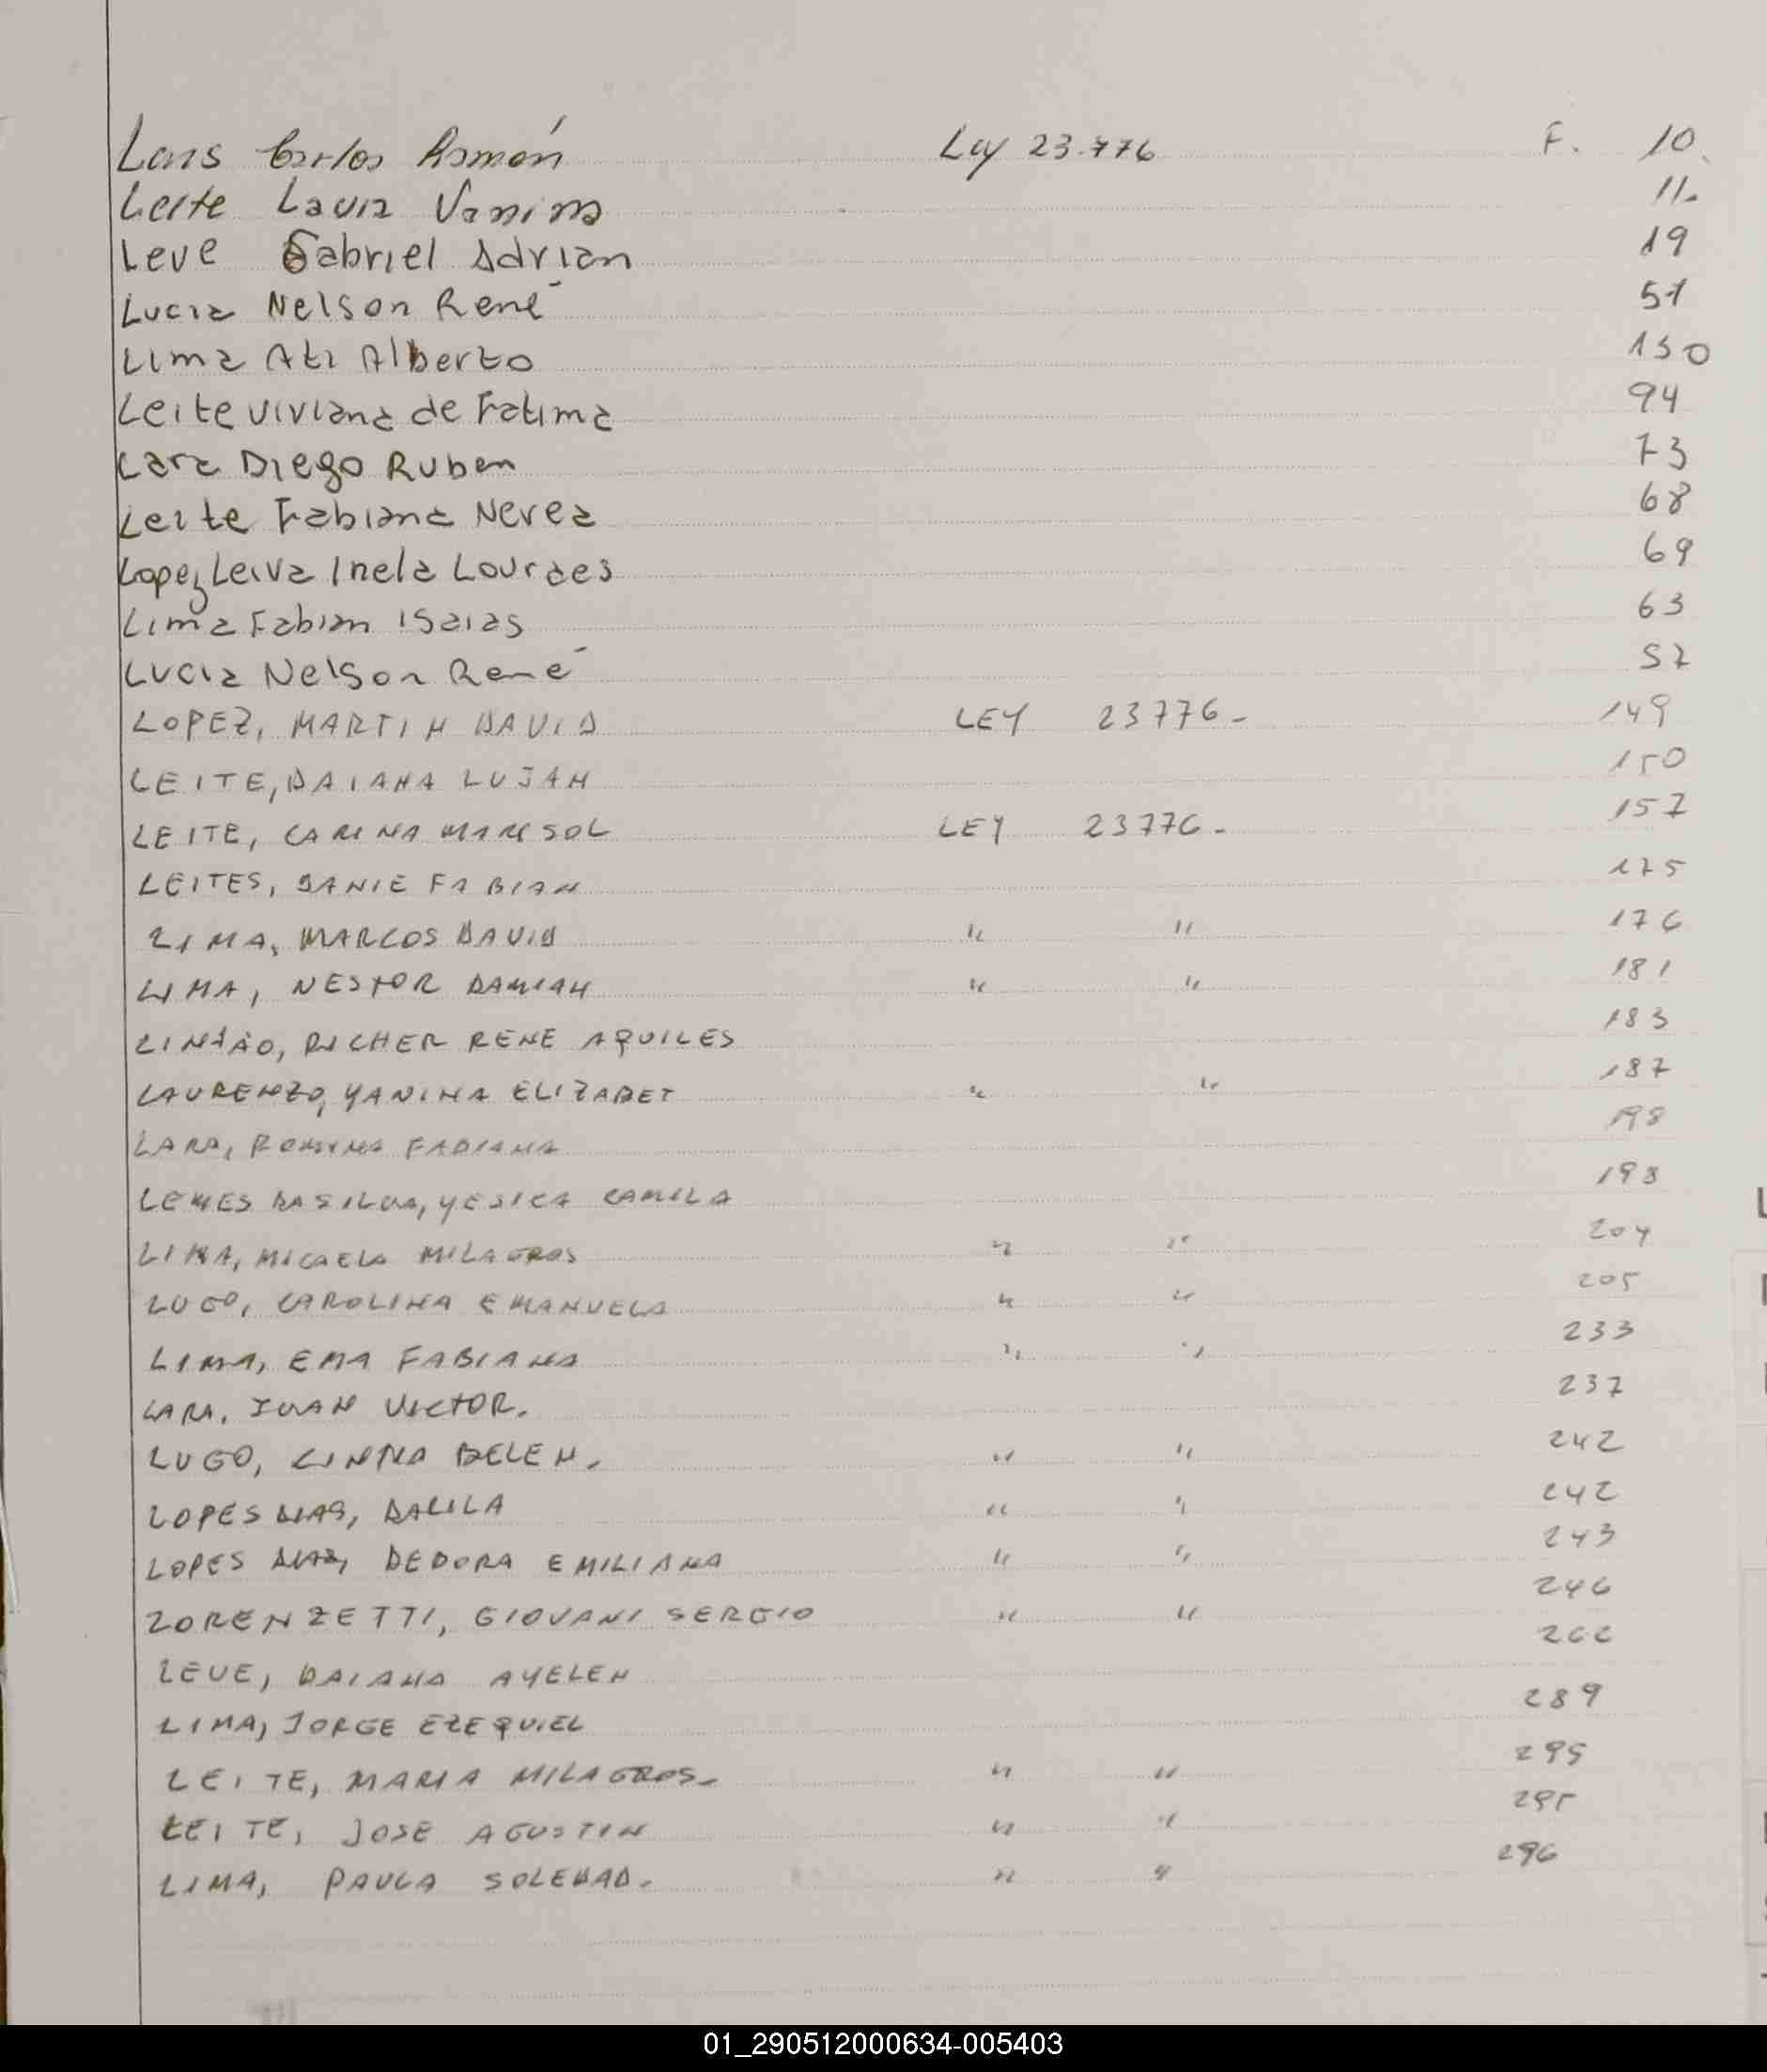 Carlos Román Ley 23.776 F. 10
Leite Laura Vanina 11.
Leve Gabriel Adrian 19
Lucia Nelson René 51
Lima Ati Alberto 130
Leite Viviana de Fatima 94
Lara Diego Ruben 73
Leite Fabiana Nerea 68
Lopez Leiva Inela Lourdes 69
Lima Fabian Isaias 63
Lucia Nelson René 57
LOPEZ, MARTIN DAVID LEY 23776- 149
LEITE, DAIANA LUJAN 150
LEITE, CARINA MARISOL LEY 23776- 157
LEITES, DANIE FABIAN 175
LIMA, MARCOS DAVID " " 176
LIMA, NESTOR DAMIAN " " 181
RICHER RENE AQUILES 183
LAURENZO, YANINA ELIZABET " " 187
LARA, ROMINA FABIANA 198
LEMES DA SILVA, YESICA CAMILA 193
LIMA, MICAELA MILAGROS " " 204
LUGO, CAROLINA EMANUELA " " 205
LIMA, EMA FABIANA " " 233
LARA, JUAN VICTOR. 237
LUGO, CINTIA BELEN. " " 242
LOPES DIAS, DALILA " " 242
LOPES DIAS, DEBORA EMILIANA " " 243
LORENZETTI, GIOVANI SERGIO " " 246
LEVE, DAIANA AYELEN 262
LIMA, JORGE EZEQUIEL 289
LEITE, MARIA MILAGROS. " " 295
LEITE, JOSE AGUSTIN " " 295
LIMA, PAULA SOLEDAD. " " 296
01_290512000634-005403